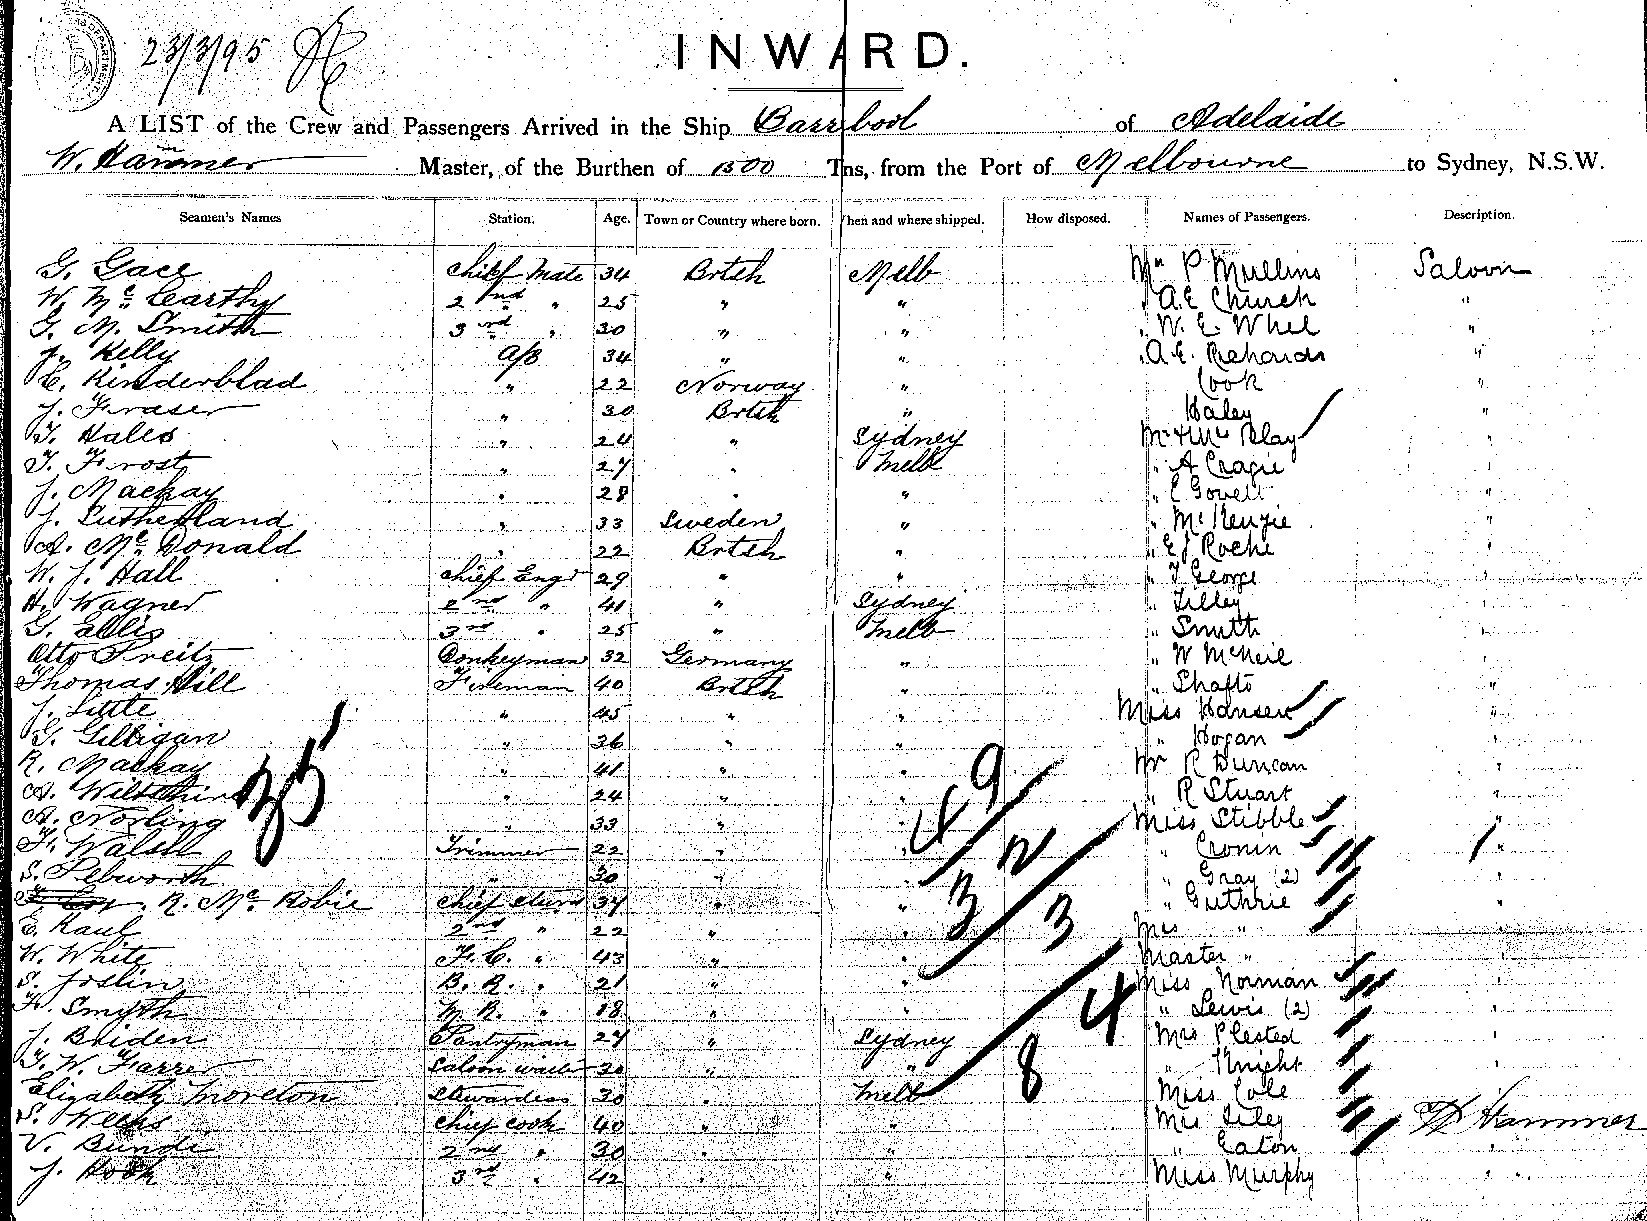 23/3/95
INWARD.
A LIST of the Crew and Passengers Arrived in the Ship Barrabool of Adelaide
W. Hammer Master, of the Burthen of 1500 Tns, from the Port of Melbourne to Sydney, N.S.W.
Seamen's Names Station. Age. Town or Country where born. When and where shipped. How disposed. Names of Passengers. Description.
G. Gace Chief Mate 34 Brtsh Melb Mr P Mullins Saloon
W. Mc Carthy 2nd " 25 " " " A.E. Church "
G. M. Smith 3rd " 30 " " " W. E. "
J. Kelly A/B 34 " " " A.E. Richards "
C. Kinderblad " 22 Norway " Cook "
J. Fraser " 30 Brtsh " Haley "
T. Hales " 24 " Sydney Mr & Mrs Play "
T. Frost " 27 " Melb " A Cragie "
J. Mackay " 28 " " " C Govett "
J. Sutherland " 33 Sweden " " McKenzie "
A. Mc Donald " 22 Brtsh " " E J Roche "
W. J. Hall Chief Engr 29 " " " T George "
H. Wagner 2nd " 41 " Sydney " Lilley "
G. Ellis 3rd " 25 " Melb " Smith "
Otto Donkeyman 32 Germany " " W McNeil "
Thomas Hill Fireman 40 Brtsh " " Shafto "
J. Little " 45 " " Miss Hansen "
G. Gilligan " 36 " " " Hogan "
R. Mackay " 41 " " Mr R Duncan "
A. Wiltshire " 24 " " " R Stuart "
A. Norling " 33 " " Miss Stibble "
F. Walsh Trimmer 22 " " " Cronin "
S. Pebworth " 30 " " " Gray (2) "
R. Mc Robie Chief Stwd 37 " " " Guthrie "
E. Kaul 2nd " 22 " " Mrs " "
W. White F.C. " 43 " " Master " "
S. Joslin B. R. " 21 " " Miss Norman "
F. Smyth M. R. " 18 " " " Lewis (2) "
J. Briden Pantryman 27 " Sydney Mrs Plested "
T. W. Farrer Saloon waiter " " " Knight "
Elizabeth Moreton Stewardess 30 " Melb Miss Cole
S. Weeks Chief Cook 40 " " Mrs Hammer
V. Bundi 2nd " 30 " " " Eaton "
J. 3rd " 42 " " Miss Murphy "
35
49
32
3
4
8